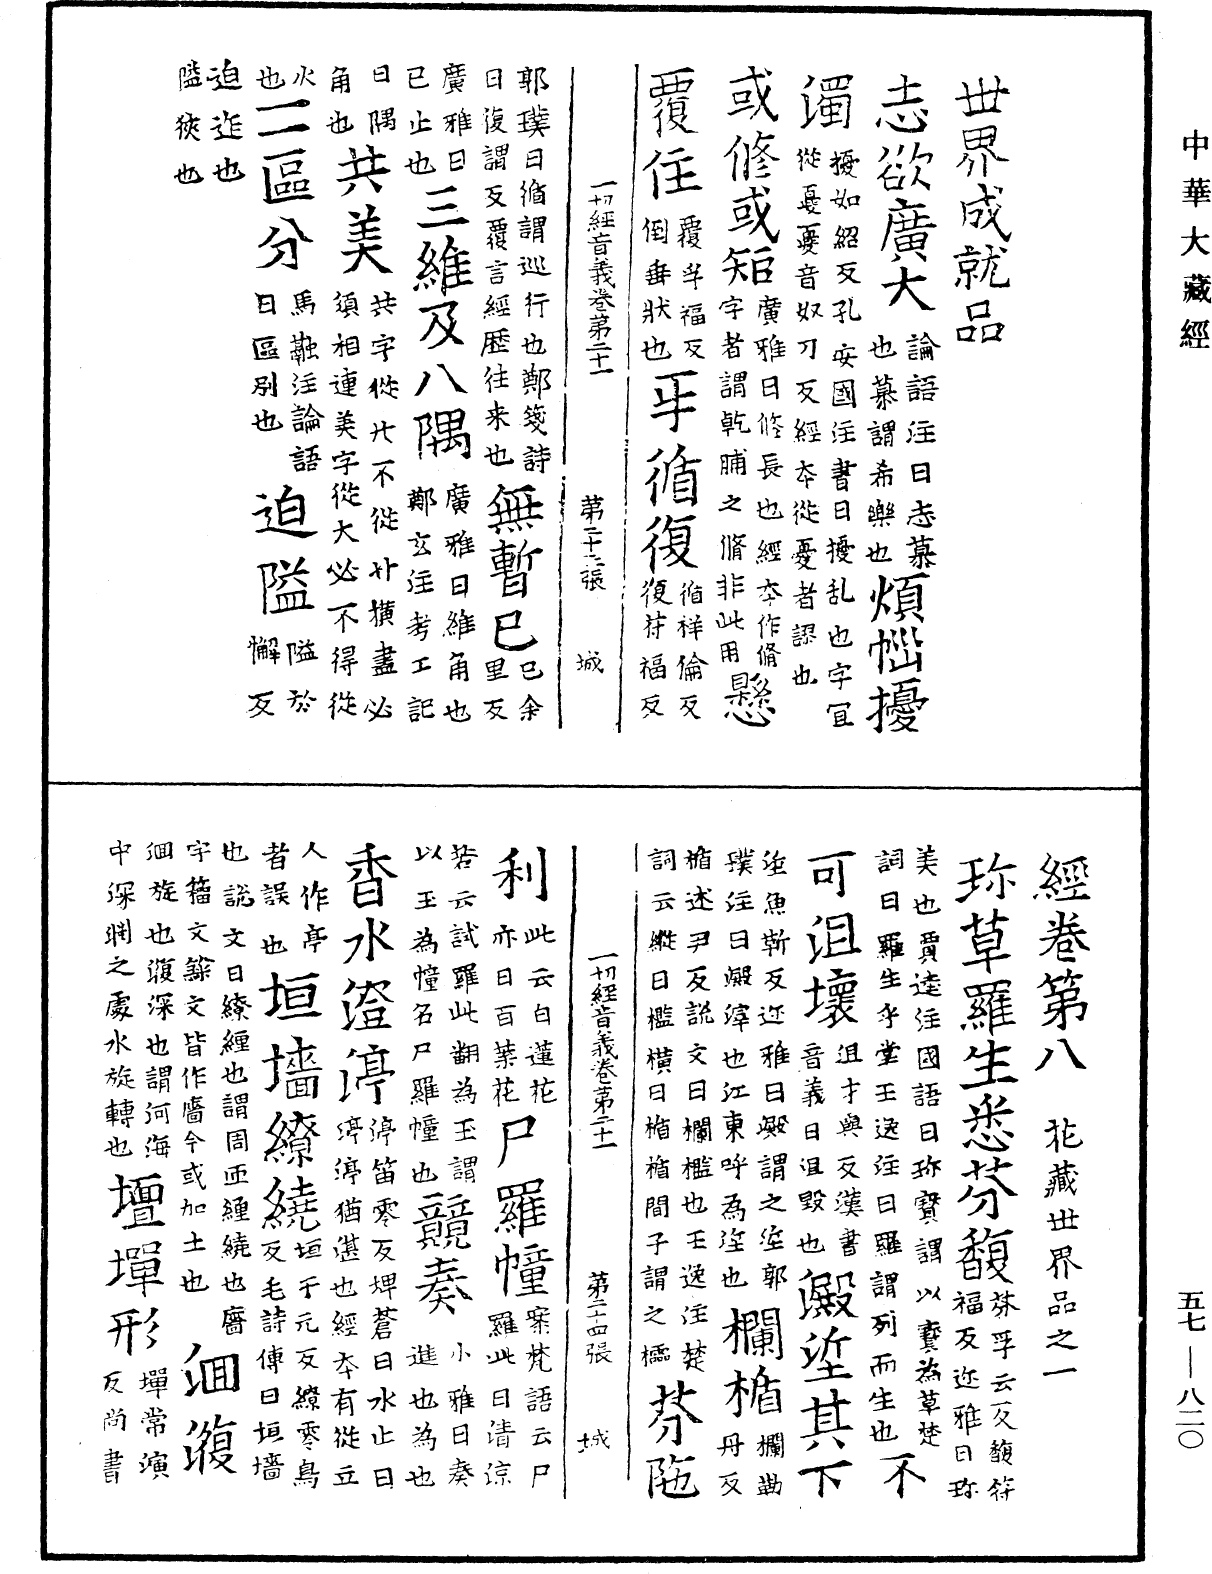 中華大藏經
世界成就品
志欲廣大 論語注曰志慕也慕謂希樂也 煩惱擾
濁 擾如紹反孔安國注書曰擾乱也字冝從憂憂音奴刀反經本從憂者謬也
或脩或矩 廣雅曰脩長也經本作脩字者謂乾脯之脩非此用 懸
覆住 覆孚福反倒垂狀也 乎循復 循祥倫反復符福反
一切經音義卷第二十一 第二十三張 城
郭璞曰循謂巡行也鄭箋詩曰復謂反覆言經歷往来也 無暫已 已余里反
廣雅曰已止也 三維及八隅 廣雅曰維角也鄭玄注考工記
曰隅角也 共美 共字從廾不從廾橫畫必須相連美字從大必不得從
火也 二區分 馬融注論語曰區別也 迫隘 隘於懈反
迫迮也隘狹也
經卷第八 花藏世界品之一
珎草羅生悉芬馥 芬孚云反馥符福反迩雅曰珎
美也賈逵注國語曰珎寶謂以寶為草楚詞曰羅生乎堂王逸注曰羅謂列而生也 不
可沮壞 沮才與反漢書音義曰沮毀也 澱垽其下
垽魚靳反迩雅曰澱謂之垽郭璞注曰澱滓也江東呼為垽也 欄楯 欄勒丹反
楯述尹反說文曰欄檻也王逸注楚詞云縱曰檻橫曰楯楯間子謂之櫺 芬陁
一切經音義卷第二十一 第二十四張 城
利 此云白蓮花亦曰百葉花 尸羅幢 案梵語云尸羅此曰清涼
若云試羅此翻為玉謂以玉為幢名尸羅幢也 競奏 小雅曰奏進也為也
香水澄渟 渟笛零反埤蒼曰水止曰渟渟猶湛也經本有從立
人作亭者誤也 垣墻繚繞 垣于元反繚零鳥反毛詩傳曰垣墻
也說文曰繚纏也謂周迊纏繞也廧字籀文篆文皆作廧今或加土也 洄澓
洄旋也澓深也謂河海中深渊之處水旋轉也 壇墠形 墠常演反尚書
五七—八二〇